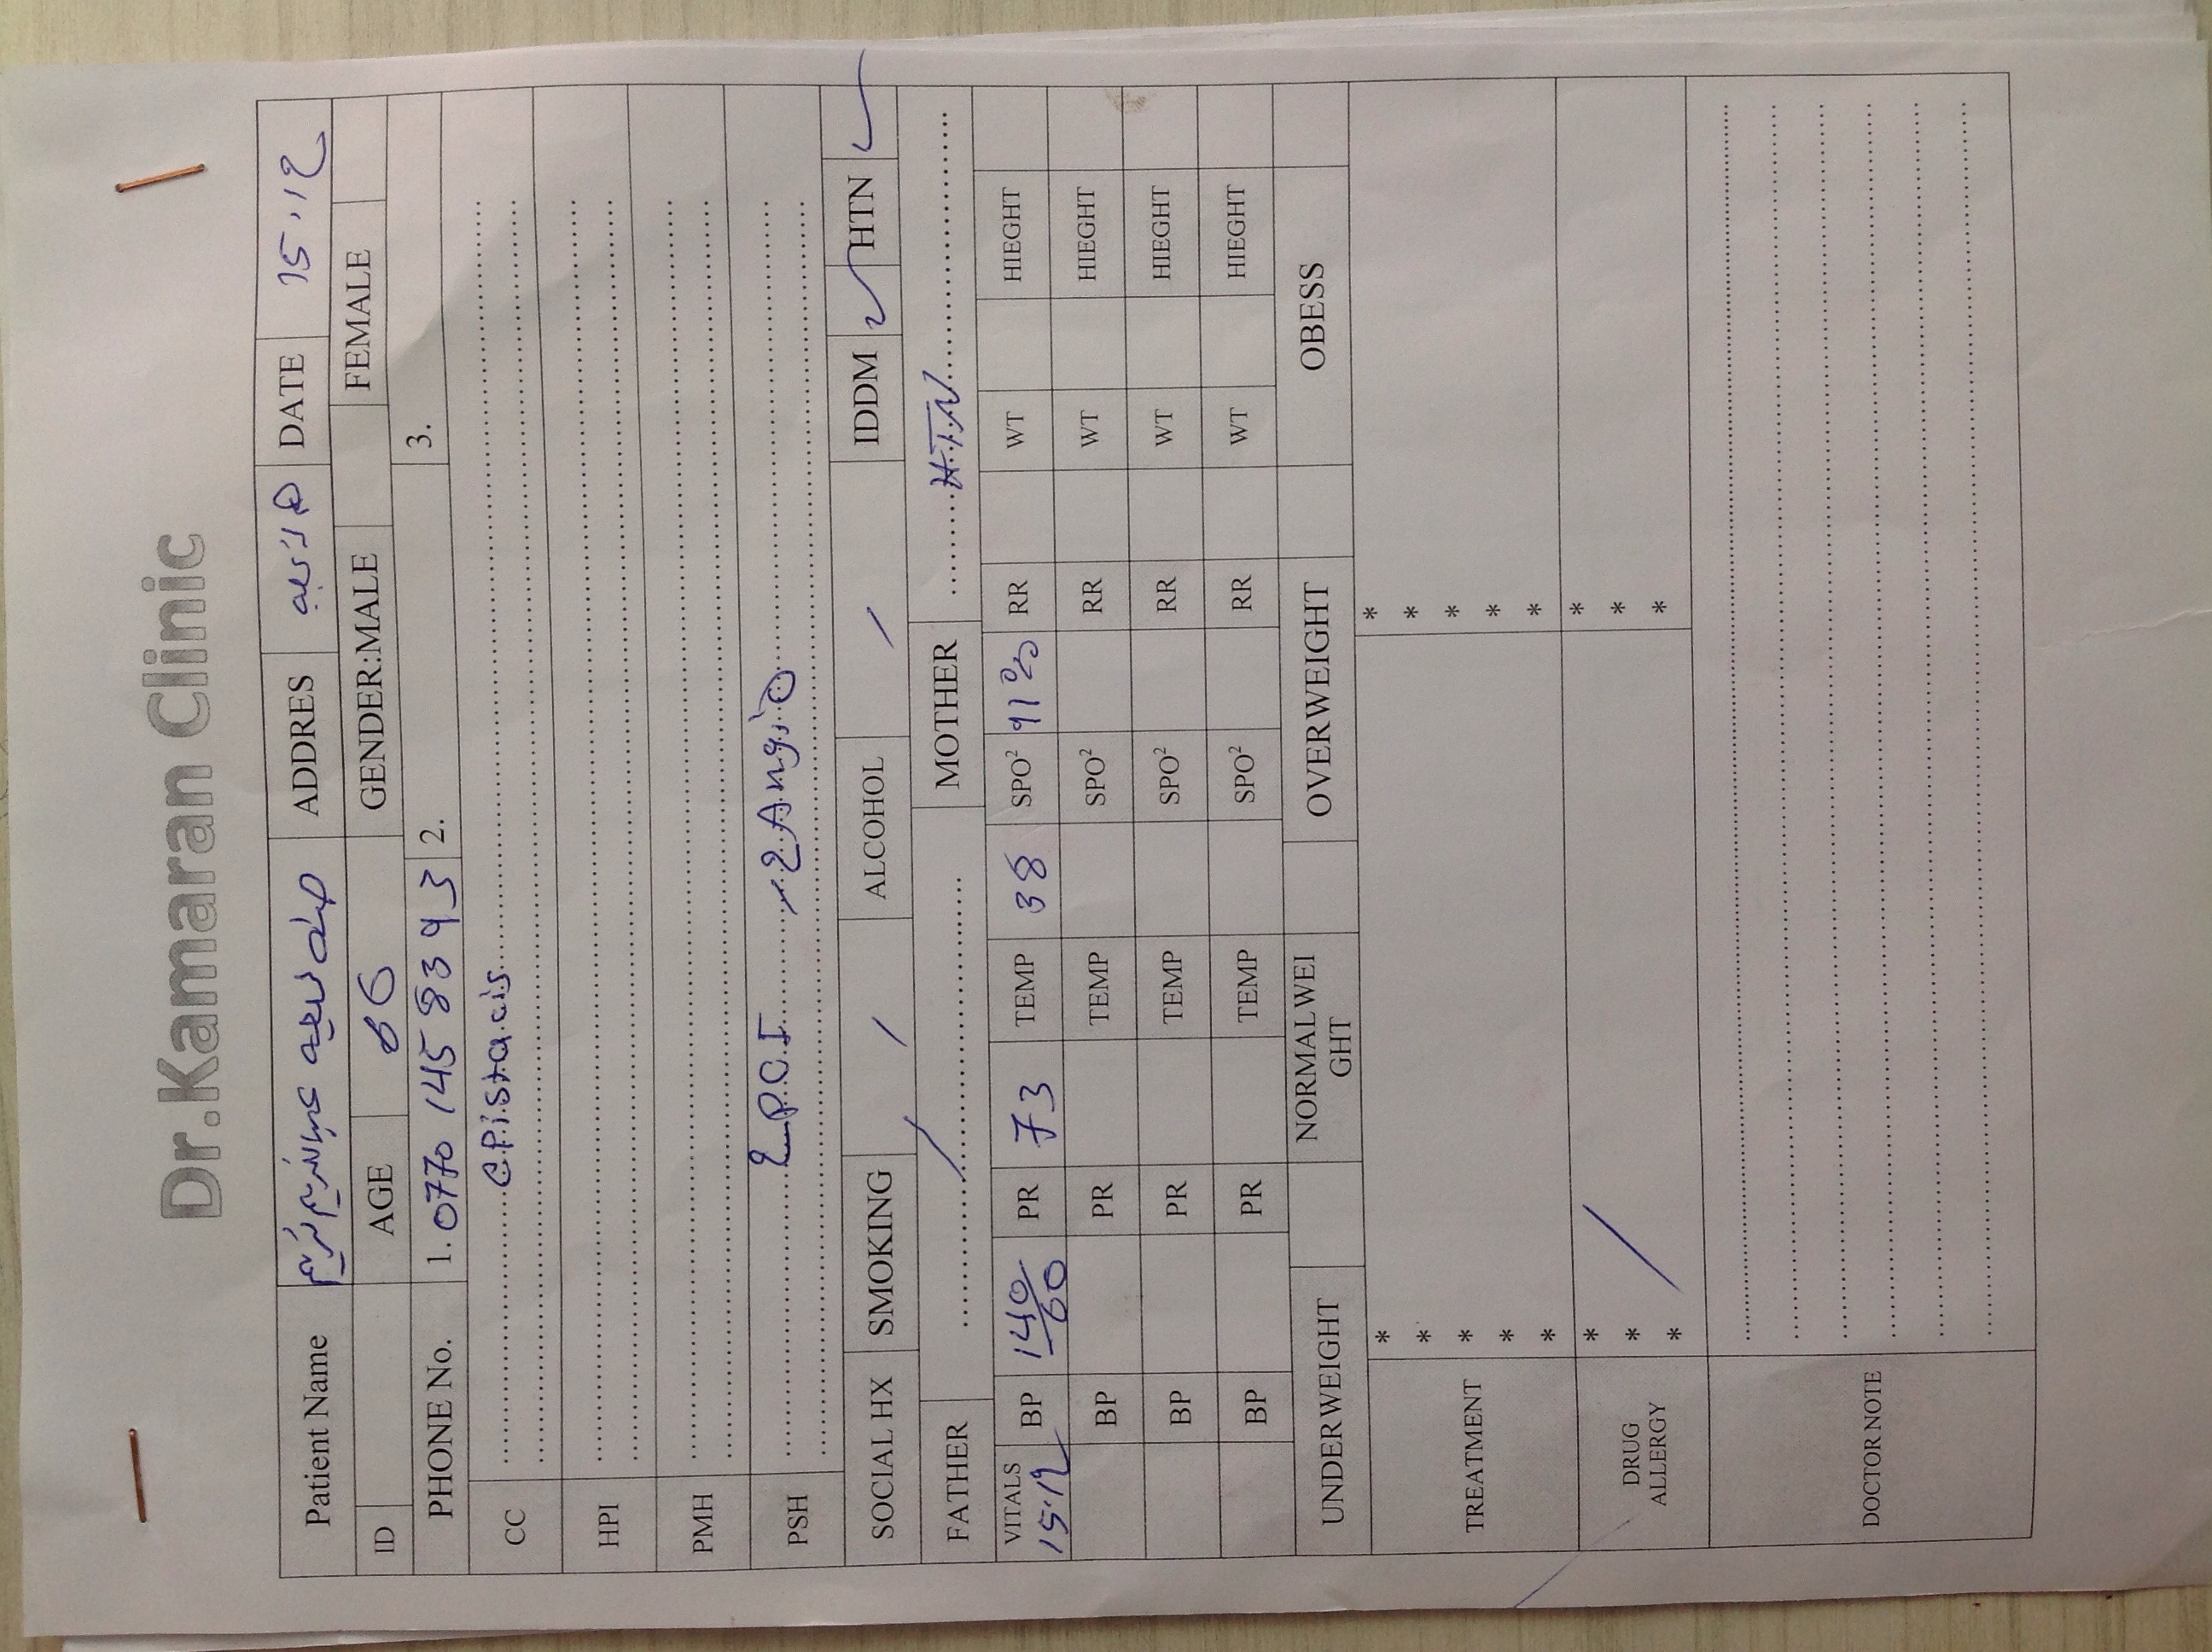 Dr.Kamaran Clinic
Patient Name ADDRES DATE 15.12
ID AGE GENDER:MALE FEMALE
PHONE No. 1. 0770 145 83 93 2. 3.
CC epistacis
HPI
PMH
PSH 2 Angio
SOCIAL HX SMOKING / ALCOHOL / IDDM ✓ HTN ✓
FATHER / MOTHER HTN
VITALS 15.12 BP 140/60 PR 73 TEMP 38 SPO² 91% RR WT HIEGHT
BP PR TEMP SPO² RR WT HIEGHT
BP PR TEMP SPO² RR WT HIEGHT
BP PR TEMP SPO² RR WT HIEGHT
UNDERWEIGHT NORMALWEI
GHT OVERWEIGHT OBESS
TREATMENT * *
* *
* *
* *
* *
DRUG
ALLERGY * *
* / *
* *
DOCTOR NOTE